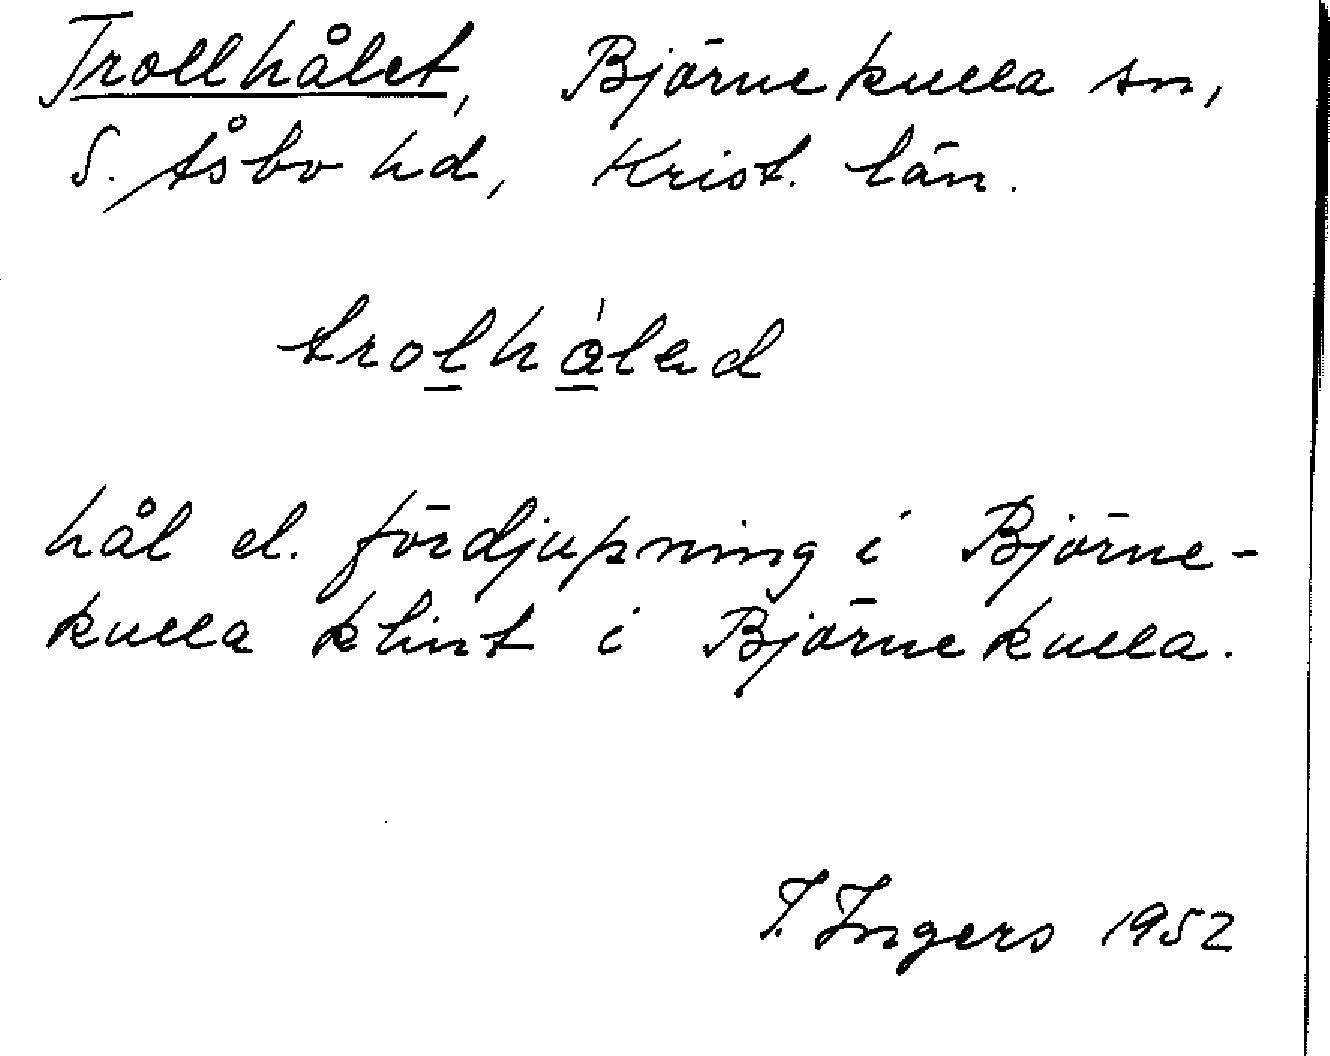 Trollhålet, Björnekulla sn,
S. Åsbo hd, Krist. län.
trolhåled
hål el. fördjupning i Björne-
kulla klint i Björnekulla.
I. Ingers 1952